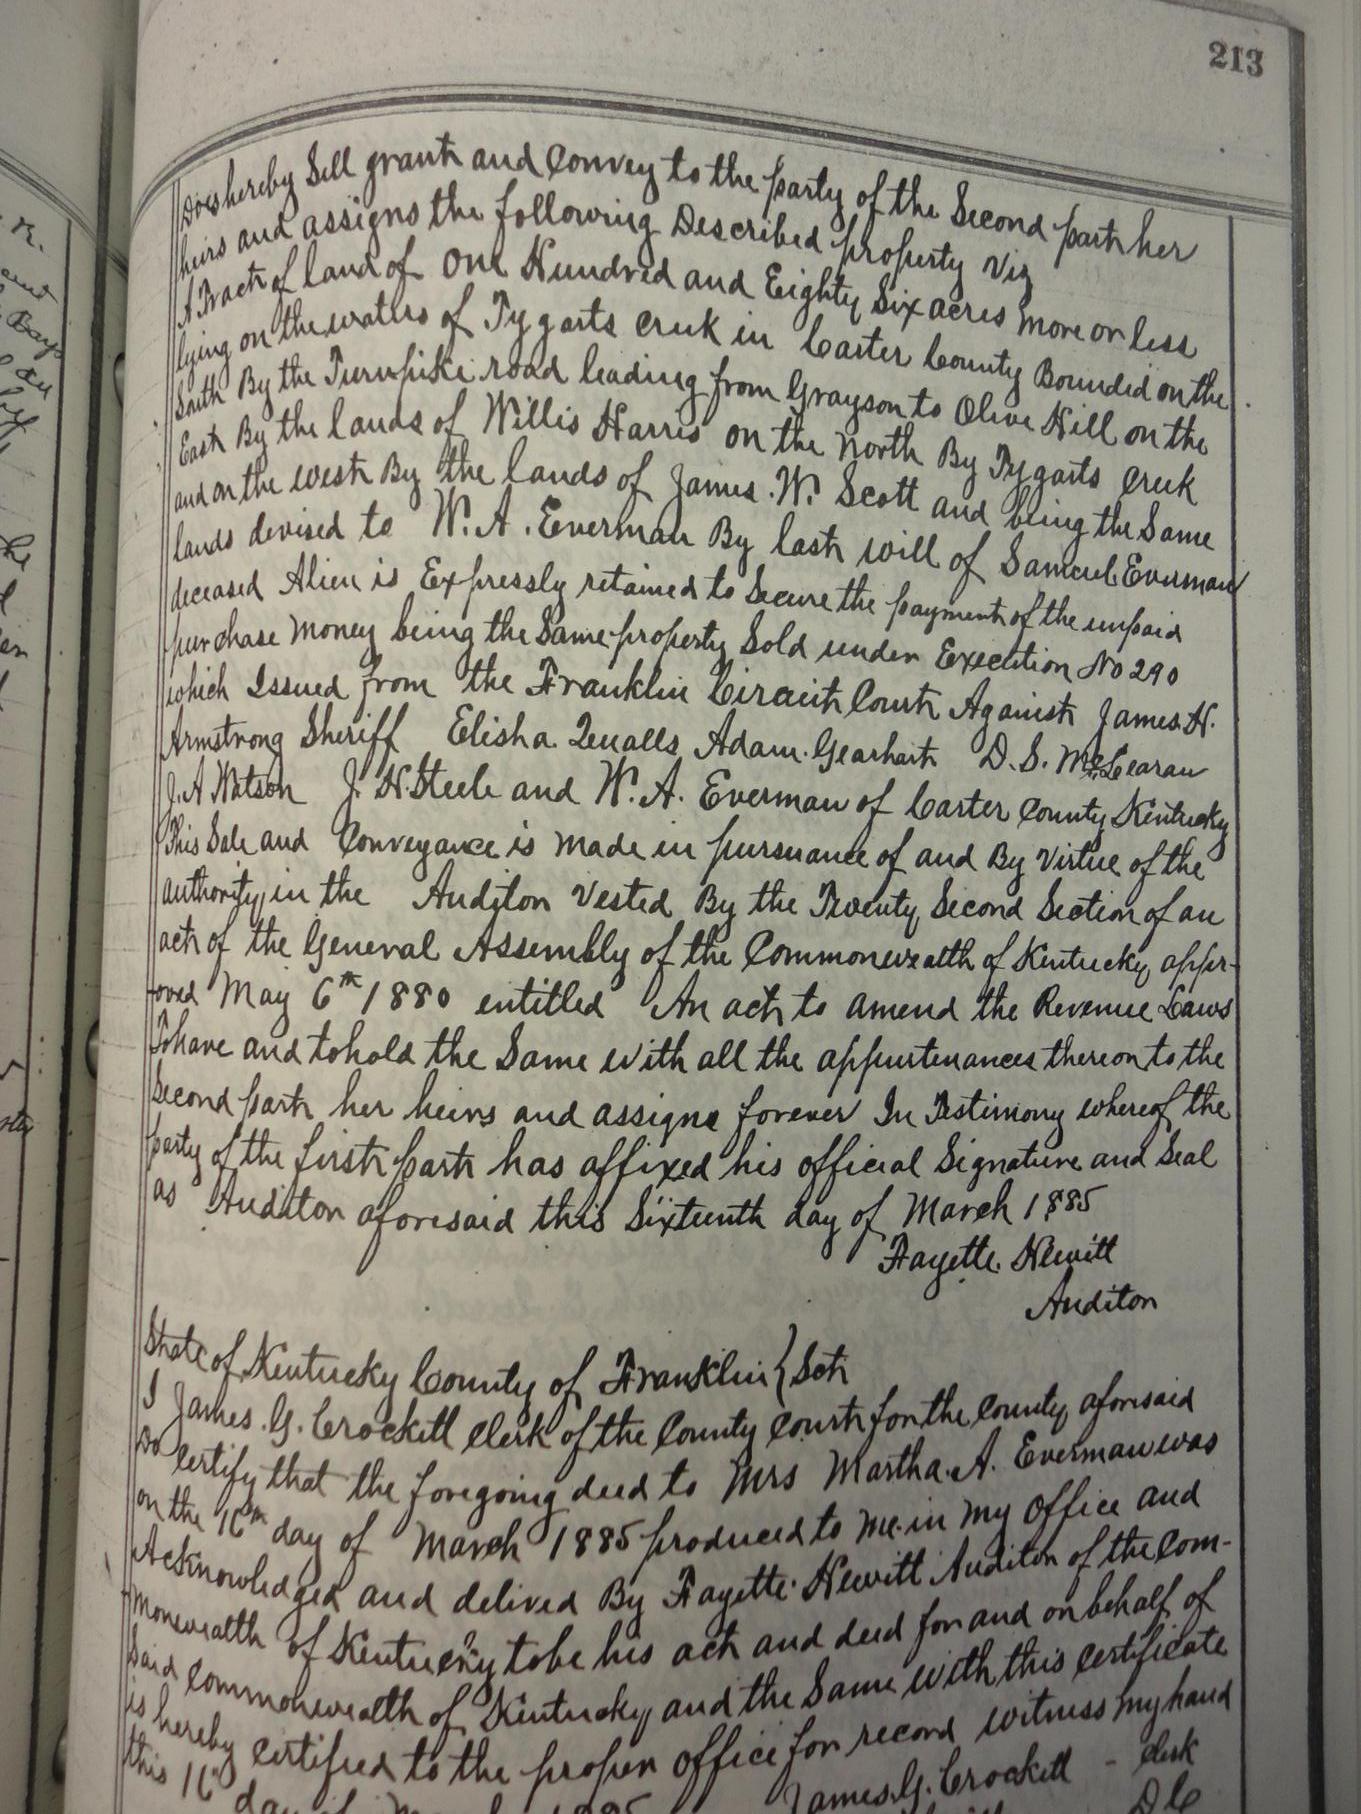 213
Does hereby Sell grant and Convey to the party of the Second part her
heirs and assigns the following Described property Viz
A Tract of land of One Hundred and Eighty Six acres more or less
lying on the waters of Tygarts creek in Carter County Bounded on the
South By the Turnpike road leading from Grayson to Olive Hill on the
East By the lands of Willis Harris on the North By Tygarts creek
and on the west By the lands of James W. Scott and being the Same
lands devised to W. A. Everman By last will of Samuel Everman
deceased Alien is Expressly retained to Secure the payment of the unpaid
purchase money being the Same property Sold under Execution No 290
which Issued from the Franklin Circuit Court Against James H.
Armstrong Sheriff Elisha Qualls Adam Gearhart D. S. McLearan
J. A Watson J. H. Steele and W. A. Everman of Carter County Kentucky
This Sale and Conveyance is made in pursuance of and By Virtue of the
authority in the Auditor Vested By the Twenty Second Section of an
act of the General Assembly of the Commonwealth of Kentucky appr-
oved May 6th 1880 entitled An act to amend the Revenue Laws
To have and to hold the Same with all the appurtenances thereon to the
Second part her heirs and assigns forever In Testimony whereof the
party of the first part has affixed his official Signature and Seal
as Auditor aforesaid this Sixteenth day of March 1885
Fayette Hewitt
Auditor
State of Kentucky County of Franklin } Sct
I James. G. Crockett Clerk of the County Court for the County aforesaid
Do certify that the foregoing deed to Mrs Martha. A. Everman was
on the 16th day of March 1885 produced to me in my office and
Acknowledged and delived By Fayette Hewitt Auditor of the Com-
monwealth of Kentucky to be his act and deed for and on behalf of
Said Commonwealth of Kentucky and the Same with this certificate
is hereby certified to the proper office for record witness my hand
this 16 day of March 1885
James G. Crockett - Clerk
D C